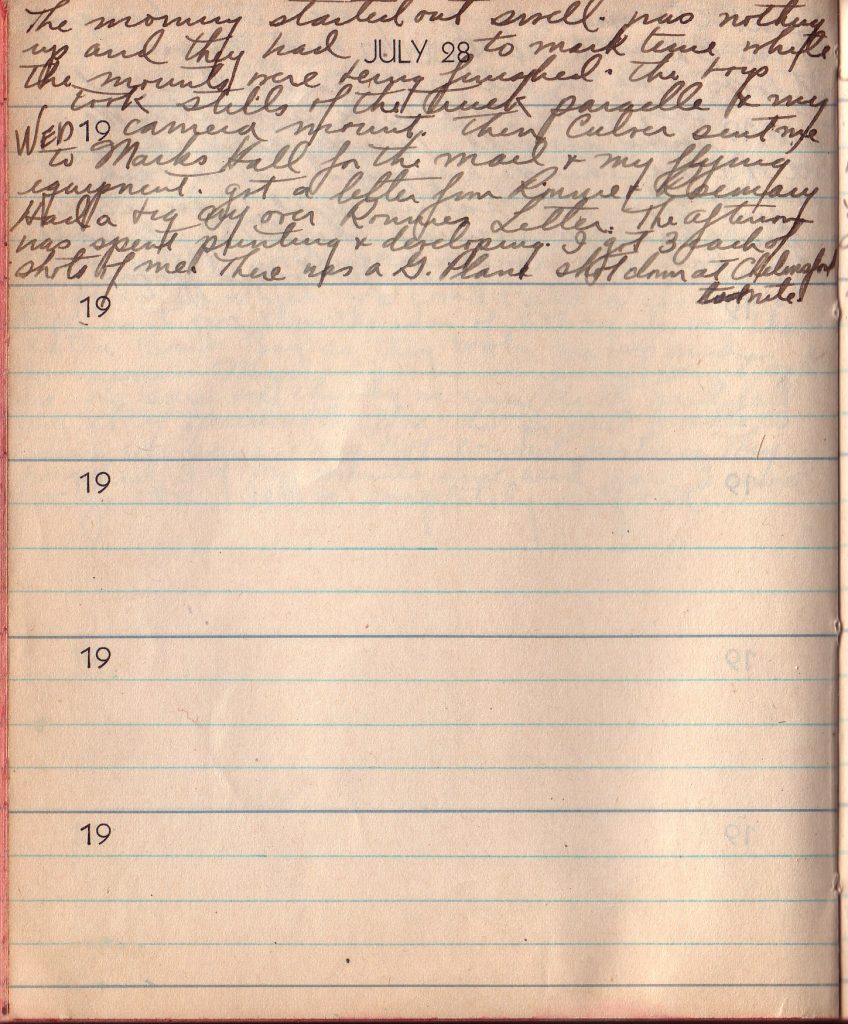 The morning started out swell. was nothing
up and they had JULY 28 to mark time while
the mounts were being finished. The boys
took stills of the truck & my
WED 19 camera mount. Then Culver sent me
to Marks Hall for the mail & my flying
equipment. got a letter from & Rosemary
Had a big cry over Letter. The afternoon
was spent printing & developing. I got 3 each of
shots of me. There was a G. Plane shot down at Chelmsford
tonite.
19
19
19
19